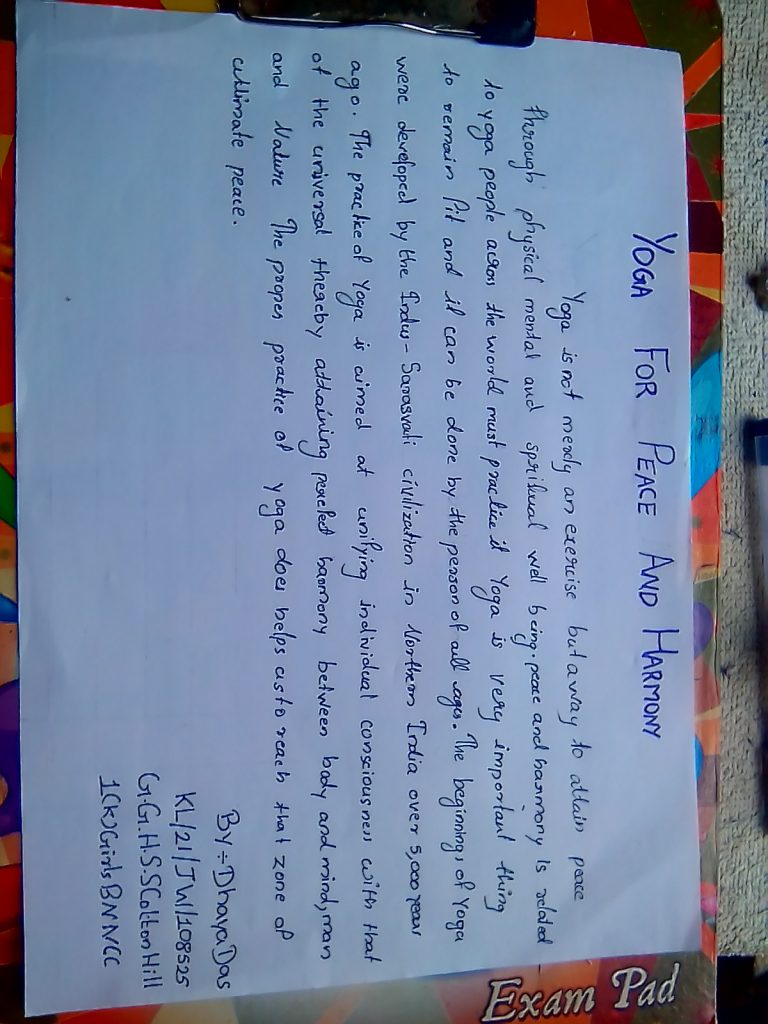 YOGA FOR PEACE AND HARMONY
Yoga is not merely an exercise but a way to attain peace
through physical mental and spritual well being. peace and harmony is related
to yoga people across the world must practice it Yoga is very important thing
to remain fit and it can be done by the person of all ages. The beginnings of Yoga
were developed by the Indus - Sarasvati civilization in Northern India over 5,000 years
ago. The practice of Yoga is aimed at unifying individual consciousness with that
of the universal thereby attaining perfect harmony between body and mind, man
and Nature The proper practice of yoga does helps us to reach that zone of
ultimate peace.
BY ÷ Dhaya Das
KL/21/JW/108525
G.G.H.S.S Cotton Hill
1(K) Girls BN NCC
Exam Pad